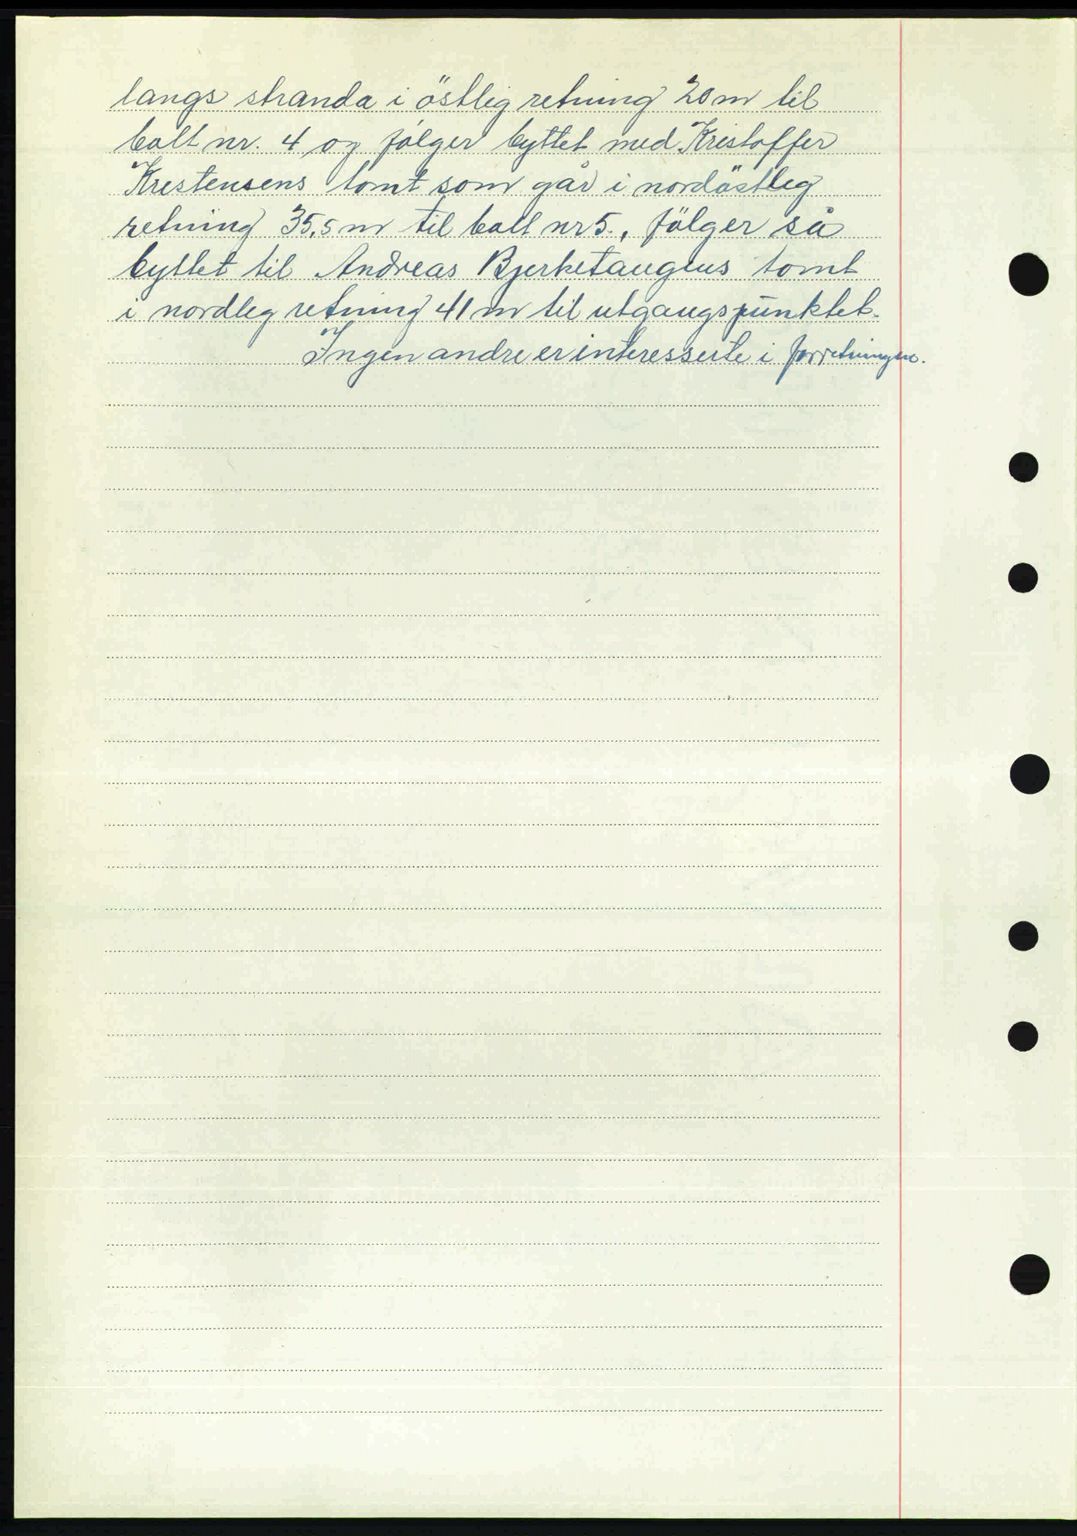 langs stranda i östlig retning 20 m til
bolt nr. 4 og følger byttet med Kristoffer
Krestensens tomt som går i nordöstleg
retning 35,5 m til bolt nr 5., fölger så
byttet til Andreas Bjerketangens tomt
i nordleg retning 41 m til utgangspunktet.
Ingen andre er interesserte i forretningen.